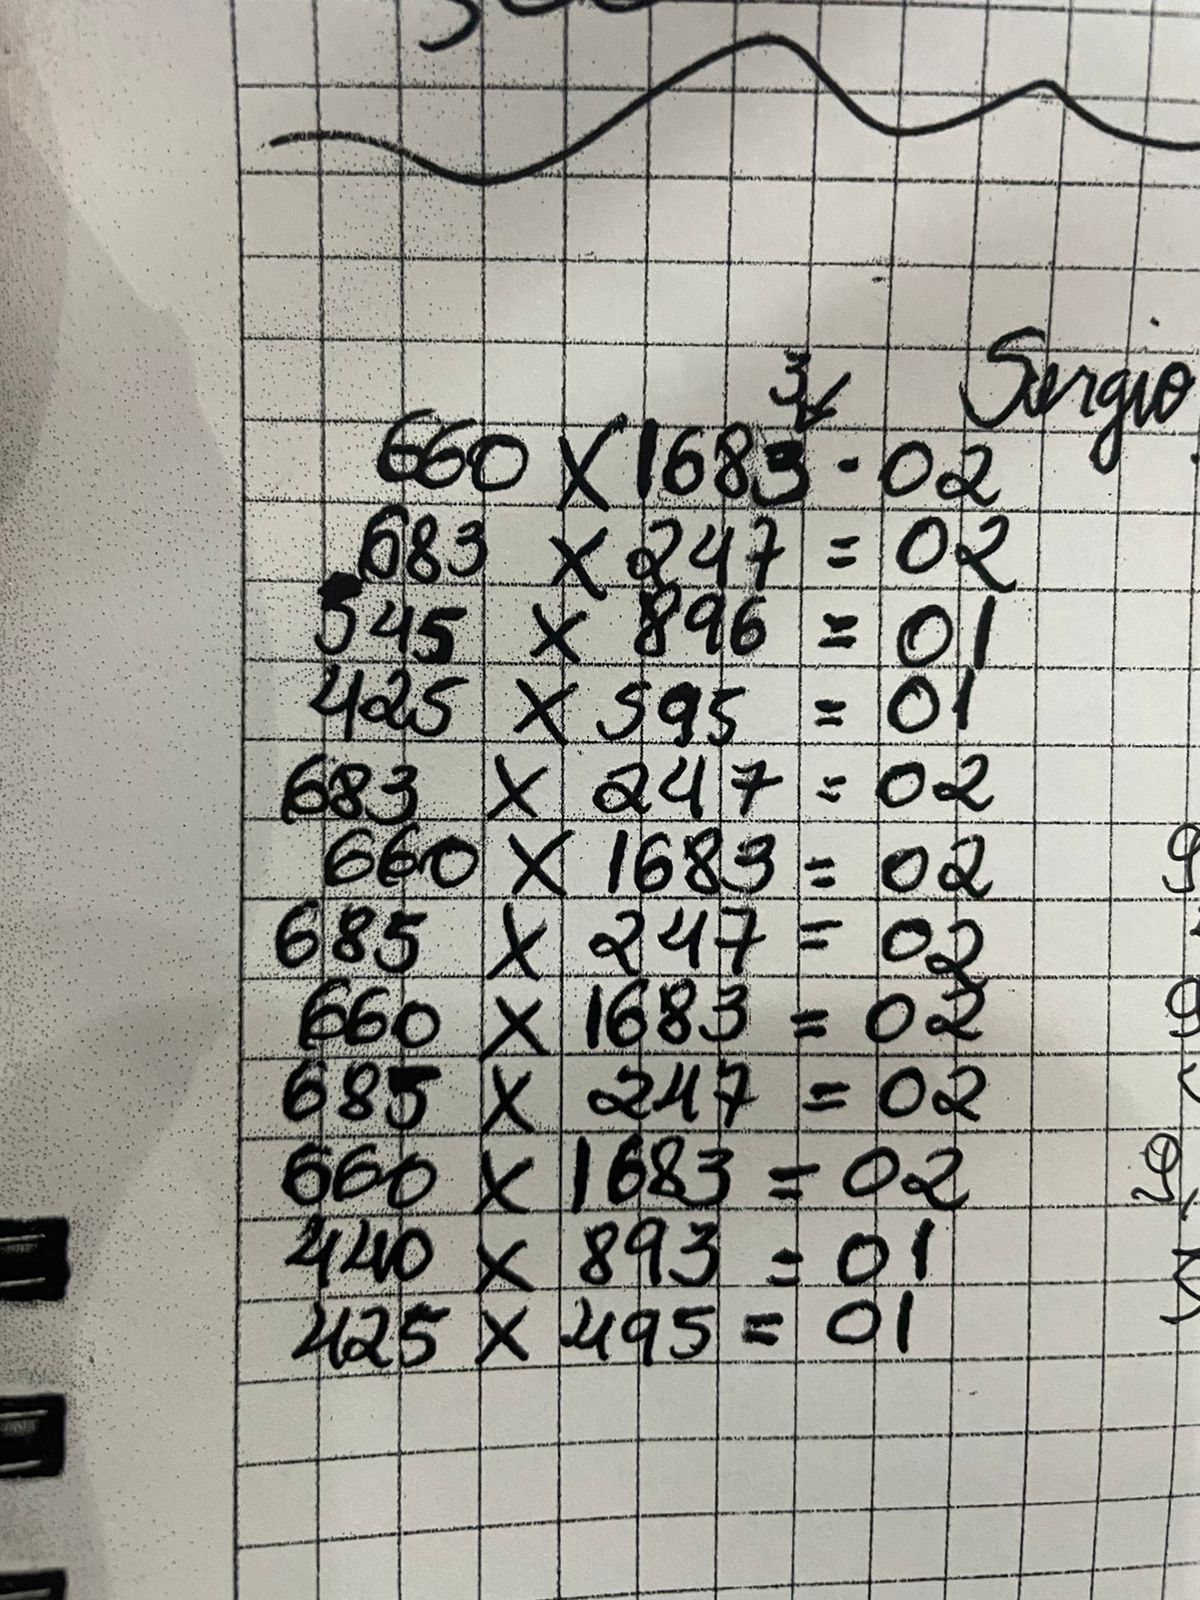 3
Sergio
660 X 1683 - 02
683 X 247 = 02
545 X 896 = 01
425 X 595 = 01
683 X 247 = 02
660 X 1683 = 02
685 X 247 = 02
660 X 1683 = 02
685 X 247 = 02
660 X 1683 = 02
440 X 893 = 01
425 X 495 = 01